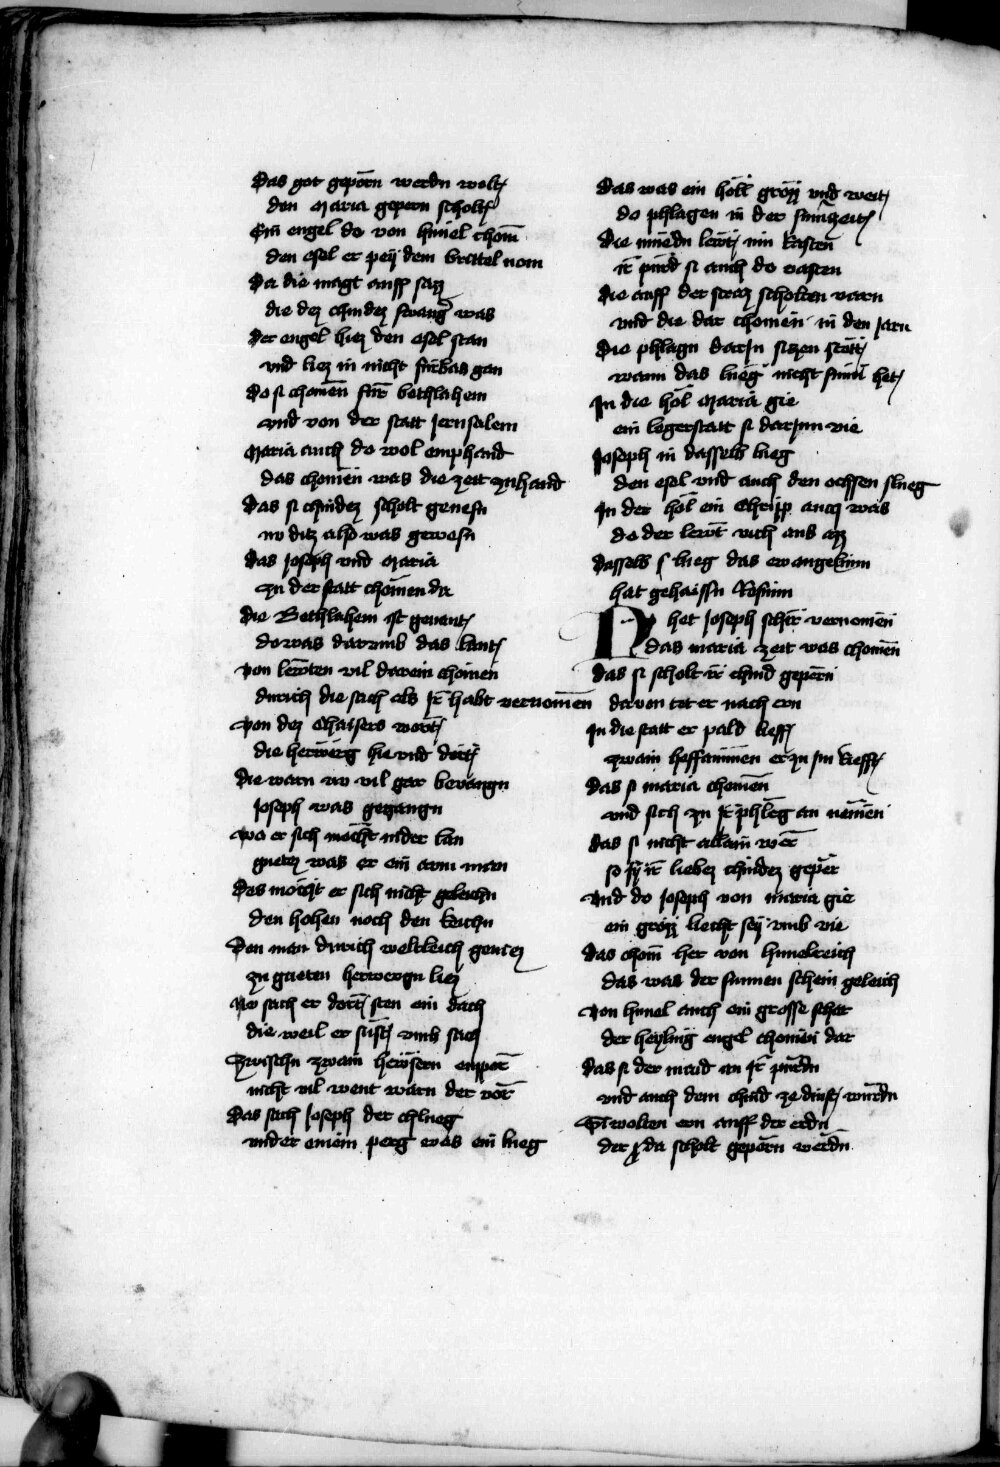 Das got geporn werdn wolt
den Maria gepern scholt
Ein engel do von himel chom
den esel er pey dem brittel nom
Da die magt auff sazz
die dez chindez swanger was
Der engel hiez den esel stan
vnd liez in nicht fürbas gan
Do si chomen für bethlahem
vnd von der statt Jerusalem
Maria auch do wol emphand
das chomen was die zeit zuhand
Das si chindez scholt genesn
nv ditz also was gewesn
Das Joseph vnd Maria
zu der statt chomen da
die Bethlahem ist genant
do was darumb das lant
von lewten vil darein chomen
durich die sach als ir habt vernomen
von dez chaisers wort
die herwerg hie vnd dort
Die warn nv vil gar bevangn
Joseph was gegangn
wo er sich mocht nider lan
gutez was er ein arm man
Des mocht er sich nicht geleichn
den hohen noch den reichn
Den man durich weltleich
zu guten herwergn liez
Nv sach er dort sten ein dach
die weil er sust vmb sach
Zwischn zwain hewsern enpor
nicht vil went warn der vor
Das sach Joseph der chlueg
vnder einem perg was ein lueg
Das was ein höll grozz vnd weit
do phlagen in der sumerzeit
die mueden lewt inn rasten
ir pürd si auch do vasten
die auff der strazz scholten varn
vnd die dar chomen in den Jarn
Die phlagn darjn sizen stet
wann das lueg nicht sunn het
In die höl Maria gie
ein legerstatt si darjnn vie
Joseph in dasselb lueg
den esel vnd auch den ochsen slueg
In der höl ein Chripp auch was
do der lewt vich aus azz
dasselb lueg das ewangelium
hat gehaissn
N het Joseph schir vernomen
das maria zeit was chomen
das si scholt ir chind gepern
davon tet er nach ern
In die statt er pald lieff
zwain heffammen er zu im rieff
das si maria chomen
vnd sich zu ir phleg an nemen
das si nicht allain wer
so sy ir liebez chindez geper
vnd do Joseph von maria gie
ein grozz liecht sey vmb vie
das chom her von himelreich
das was der sunnen schein geleich
von himel auch ein grosse schar
der heyling engel chomen dar
das si der maid an ir purdn
vnd auch dem chind ze dinst wurdn
Si wolten ern auff der erdn
der da scholt geporn werdn